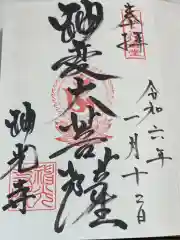 奉拝
令和六年
一月十二日
妙見大菩薩
妙光寺